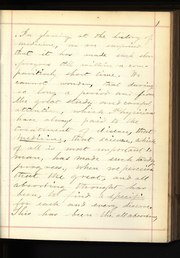 1
In glancing at the history of
medicine, we are surprised
that it has made such
progress within a com-
paratively short time. We
cannot wonder, that during
so long a period and
the great study and careful
attention, which Physicians
have always paid to the
treatment of disease, that
medicine, that science, which
of all is most important to
man, has made such
progress, when we perceive
that the great, and all
absorbing thought has
been, to find a specific
for each and every disease.
This has been the